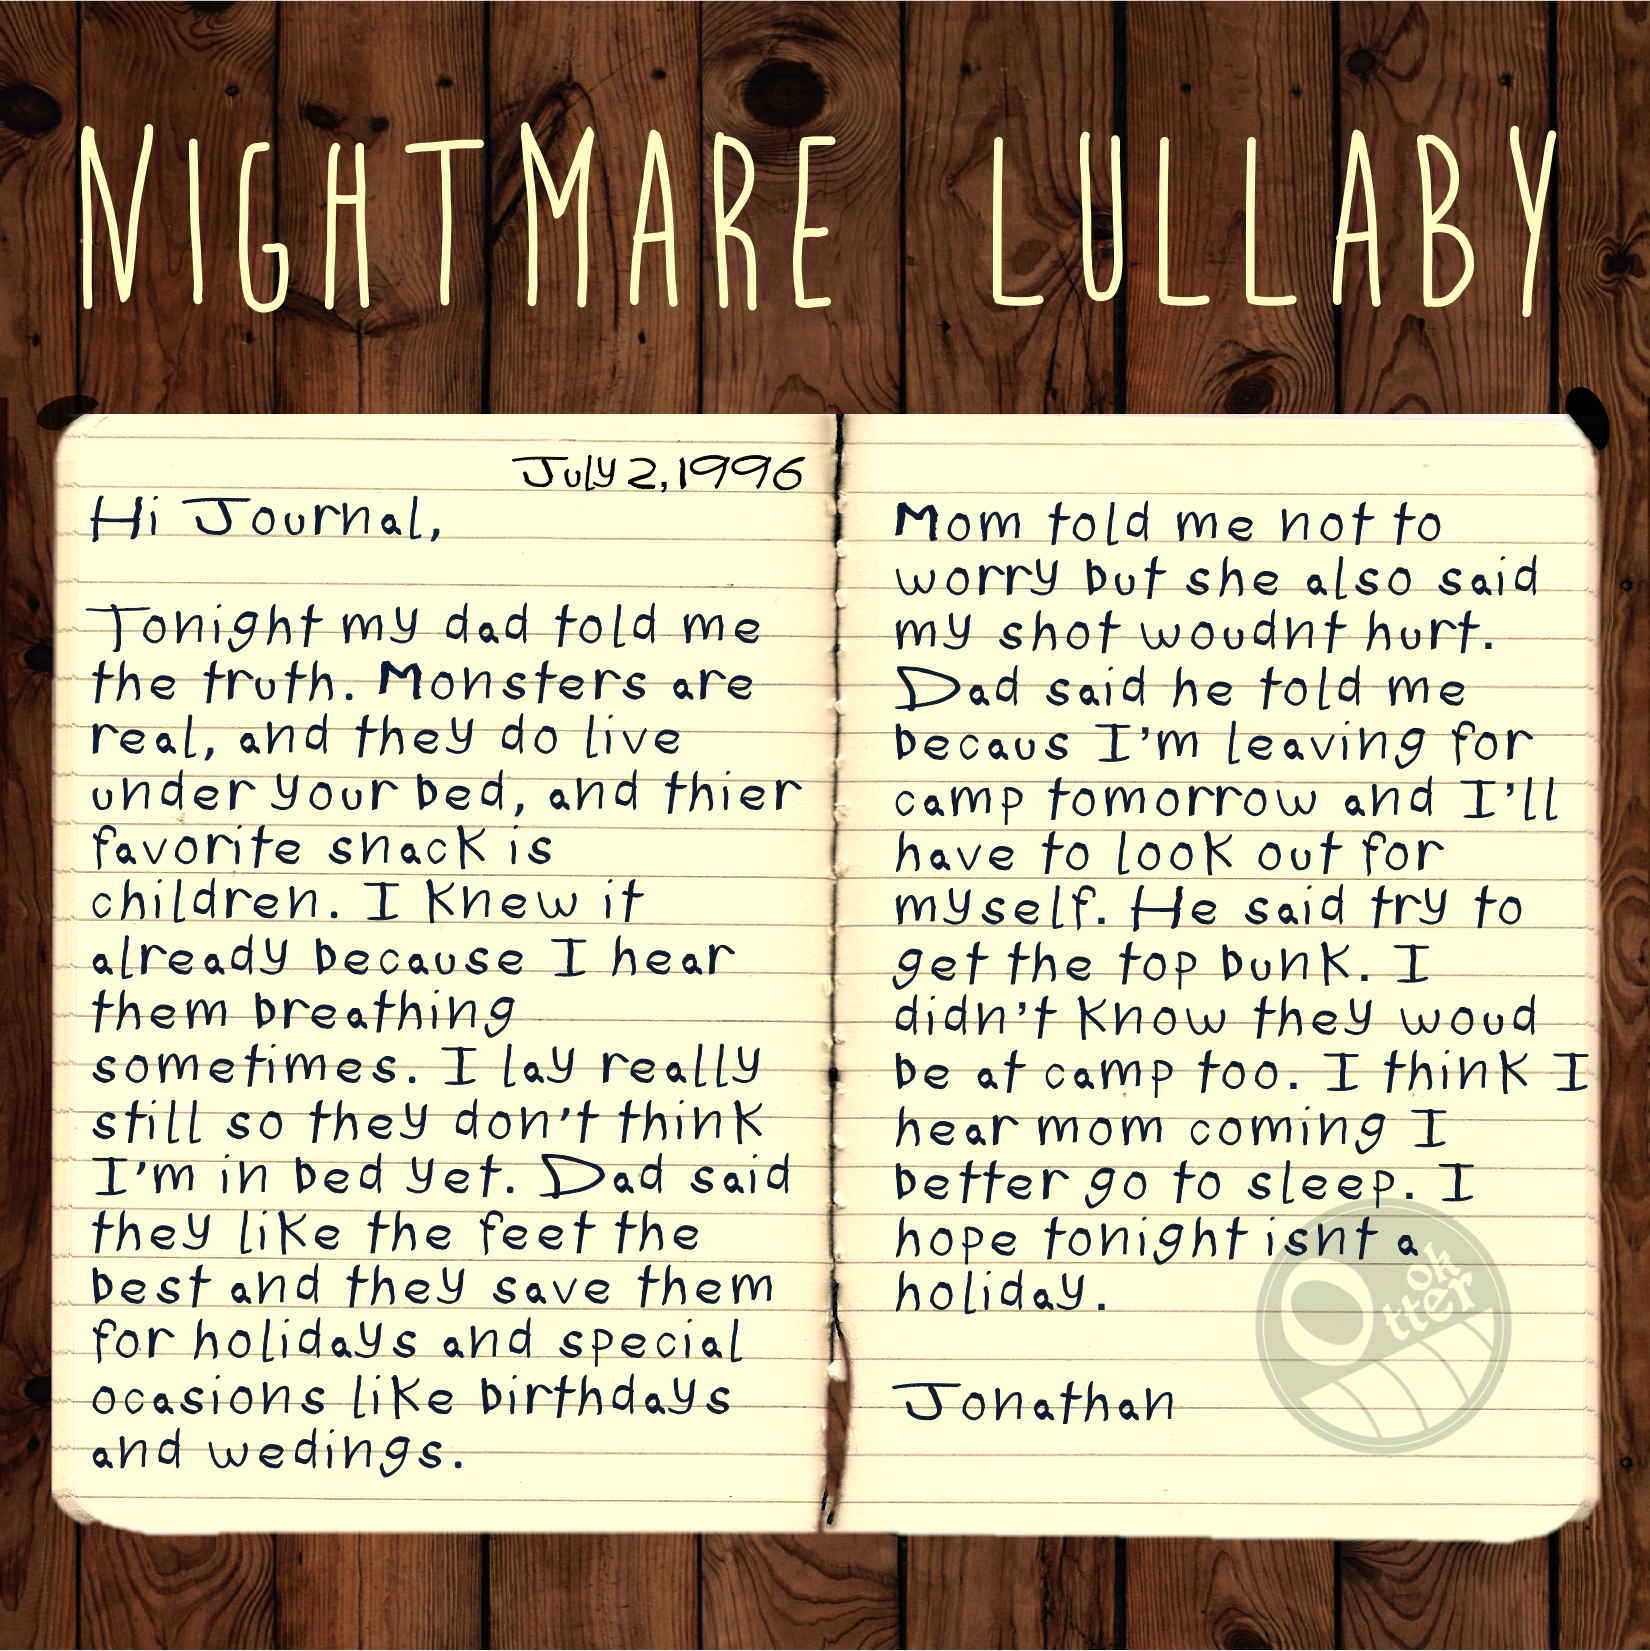 NIGHTMARE LULLABY
July 2, 1996
Hi Journal,
Tonight my dad told me
the truth. Monsters are
real, and they do live
under your bed, and thier
favorite snack is
children. I Knew it
already because I hear
them breathing
sometimes. I lay really
still so they don't think
I'm in bed yet. Dad said
they like the feet the
best and they save them
for holidays and special
ocasions like birthdays
and wedings.
Mom told me not to
worry but she also said
my shot woudnt hurt.
Dad said he told me
becaus I'm leaving for
camp tomorrow and I'll
have to look out for
myself. He said try to
get the top bunk. I
didn't know they woud
be at camp too. I think I
hear mom coming I
better go to sleep. I
hope tonight isnt a
holiday.
Jonathan
ok
otter